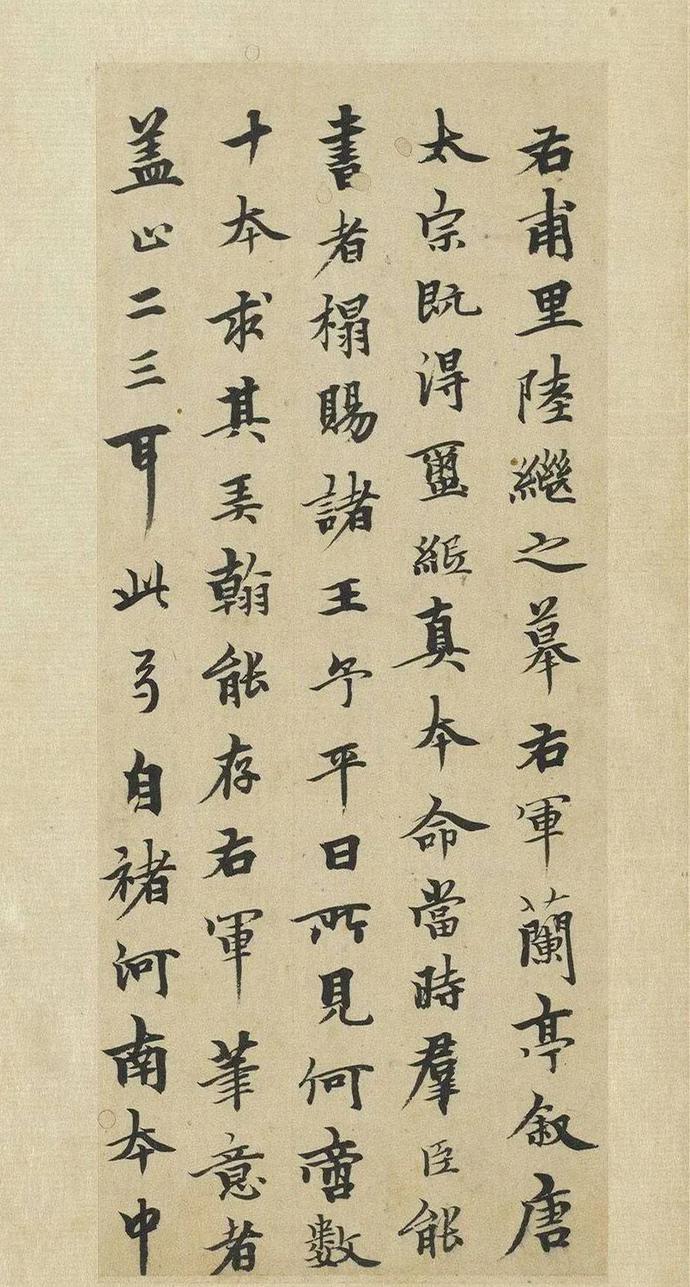 右甫里陸繼之摹右軍蘭亭叙唐
太宗既得蠒紙真本命當時羣臣能
書者榻賜諸王予平日所見何啻數
十本求其弄翰能存右軍筆意者
盖止二三耳此 自褚河南本中